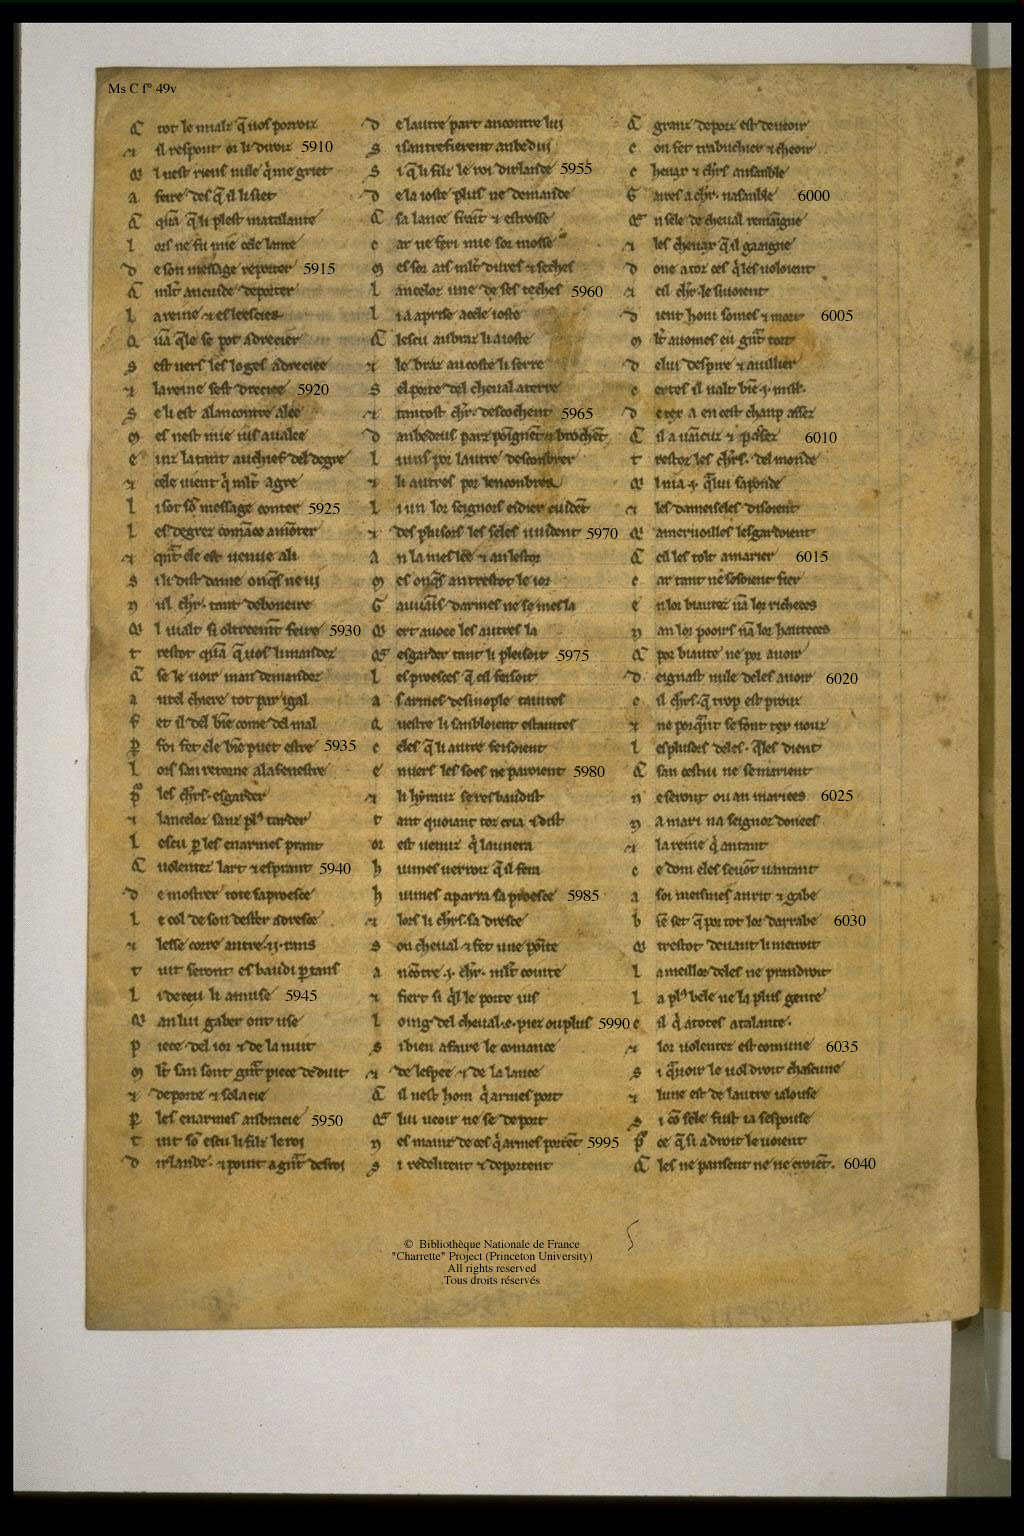 Ms C f° 49v
A tot le mialz q̃ uos porroiz
⁊ il respont or li diroiz 5910
Q l nest riens nule q̇ me griet
a feire des q̃ il li siet
C quã q̃ li plest matalante
L ors ne fu mie cele lante
D e son message reporter 5915
C mlt̃ ancuide deporter
L a reine ⁊ esleescier
Q uã q̃le se pot adrecier
S est uers les loges adreciee
⁊ la reine sest dreciee 5920
S e li est alancontre alee
M es nest mie ius aualee
E inz latant auchief del degre
⁊ cele uient q̇ mlt̃ agre
L i sot sõ message conter 5925
L es degrez comãce amõter
⁊ qñt ele est uenue a li
S i li dist dame onq̃s ne ui
N ul chr̃. tant deboneire
Q l uialt si oltreemñt feire 5930
T restot quã q̃ uos li mandez
C se le uoir man demandez
A utel chiere tot par igal
F et il del biẽ come del mal
P foi fet ele biẽ puet estre 5935
L ors san retorne alafenestre
P les chr̃s. esgarder
⁊ lancelor sanz pl⁹ tarder
L escu p les enarmes prant
C uolentez lart ⁊ esprant 5940
D e mostrer tote saproesce
L e col de son destrier adresce
⁊ lesse corre antre .ij. rans
T uit seront esbaudi p tans
L i deceu li amuse 5945
Q an lui gaber ont use
P iece del ior ⁊ de la nuit
M lt̃ san sont gñt piece deduit
⁊ deporte ⁊ solacie
P les enarmes anbracie 5950
T int sõ escu li filz le roi
D irlande. ⁊ point a gñt desroi
D e lautre part ancontre lui
S i santrefierent anbedui
S i q̃ li filz le roi dirlande 5955
D e la ioste plus ne demande
C sa lance fraint ⁊ estrosse
C ar ne feri mie sor mosse
M es sor ais mlt̃ dures ⁊ seches
L ancelor une de ses teches 5960
L i a aprise acele ioste
C lescu aubraz li aioste
⁊ le braz au coste li serre
S el porte del cheual aterre
⁊ tantost chr̃. descochent 5965
D anbedeus parz poignẽt ⁊ brochẽt
L i uns por lautre desconbrer
⁊ li autres por lenconbrer
L i un lor seignors eidier cuidẽt
⁊ des plusors les seles uuident 5970
A n la meslee ⁊ an lestor
M es onq̃s an trestot le ior
G auuaĩs darmes ne se mesla
Q ert auoec les autres la
Q esgarder tant li pleisoit 5975
L es proesces q̃ cil feisoit
A s armes desinople taintes
Q uestre li sanbloient estaintes
C eles q̃ li autre feisoient
E nuers les soes ne paroient 5980
⁊ li hỹrauz se resbaudist
T ant quoiant toz cria ⁊ dist
Or est uenuz q̇ launera
H uimes uerroiz q̃ il fera
H uimes aparra sa proesce 5985
⁊ lors li chr̃s. sa dresce
S on cheual ⁊ fet une poĩte
A ncõtre .j. chr̃. mlt̃ cointe
⁊ fiert si q̇l le porte ius
L oing del cheual .c. piez ou plus 5990
S i bien a faire le comance
⁊ de lespee ⁊ de la lance
C il nest hom q̇ armes port
Q lui ueoir ne se deport
N es mainz de ces q̇ armes portẽt 5995
S i redelitent ⁊ deportent
C granz deporz est deueoir
C on fet trabuchier ⁊ cheoir
C heuax ⁊ chr̃s ansanble
G aires a chr̃. nasanble 6000
Q n sele de cheual remaigne
⁊ les cheuax q̃ il gaaigne
D one a toz ces q̇ les uoloient
⁊ cil chr̃. le siuoient
D ient honi somes ⁊ mort 6005
M lt̃ auomes eu gñt tort
D e lui despire ⁊ auillier
C ertes il ualt biẽ .j. mill.
D e tex a en cest chanp assez
C il a uaincuz ⁊ passez 6010
T restoz les chr̃s. del monde
Q l nia .j. q̃ lui saponde
⁊ les dameiseles disoient
Q a meruoilles lesgardoient
C cil les tolt amarier 6015
C ar tant ne sosoient fier
E n lor biautez nã lor richeces
N an lor pooirs nã lor hauteces
C por biaute ne por auoir
D eignast nule deles auoir 6020
C il chr̃s. q̃ trop est proux
⁊ ne porq̃nt se font tex uouz
L es plusors deles. q̃les dient
C san cestui ne semarient
N e seront ou an mariees 6025
N a mari na seignor donees
⁊ la reine q̇ antant
C e dom eles seuõt uantant
A soi meismes an rit ⁊ gabe
B iẽ set q̃ por tot lor darrabe 6030
Q trestot deuant li metroit
L a meillor deles ne prandroit
L a pl⁹ bele ne la plus gente
C il q̇ atotes atalante.
⁊ lor uolentez est comune 6035
S i q̃uoir le uoldroit chascune
⁊ lune est de lautre ialouse
S i cõ sele fust ia sespouse
P ce q̃ si adroit le uoient
C les ne pansent ne ne croiẽt. 6040
© Bibliothèque Nationale de France
"Charrette" Project (Princeton University)
All rights reserved
Tous droits réservés